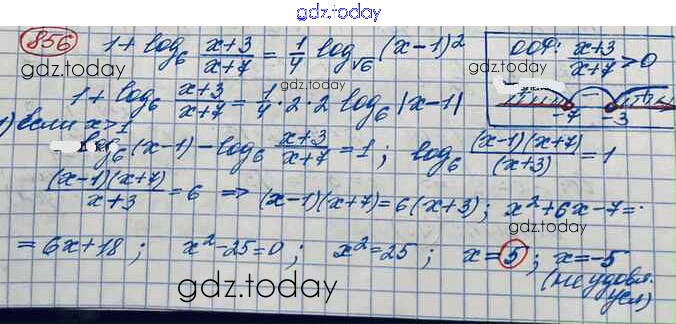 gdz.today
856 1 + log₆ (x+3)/(x+7) = 1/4 log_√6 (x-1)²
ООФ: (x+3)/(x+7) > 0
gdz.today
gdz.today
1 + log₆ (x+3)/(x+7) = 1/4 · 2 · 2 log₆ |x-1|
+ -7 -3 +
1) если x > 1
log₆ (x-1) - log₆ (x+3)/(x+7) = 1 ; log₆ (x-1)(x+7)/(x+3) = 1
(x-1)(x+7)/(x+3) = 6 ⇒ (x-1)(x+7) = 6(x+3) ; x² + 6x - 7 =
= 6x + 18 ; x² - 25 = 0 ; x² = 25 ; x = 5 ; x = -5
(не удовл. усл)
gdz.today
gdz.today